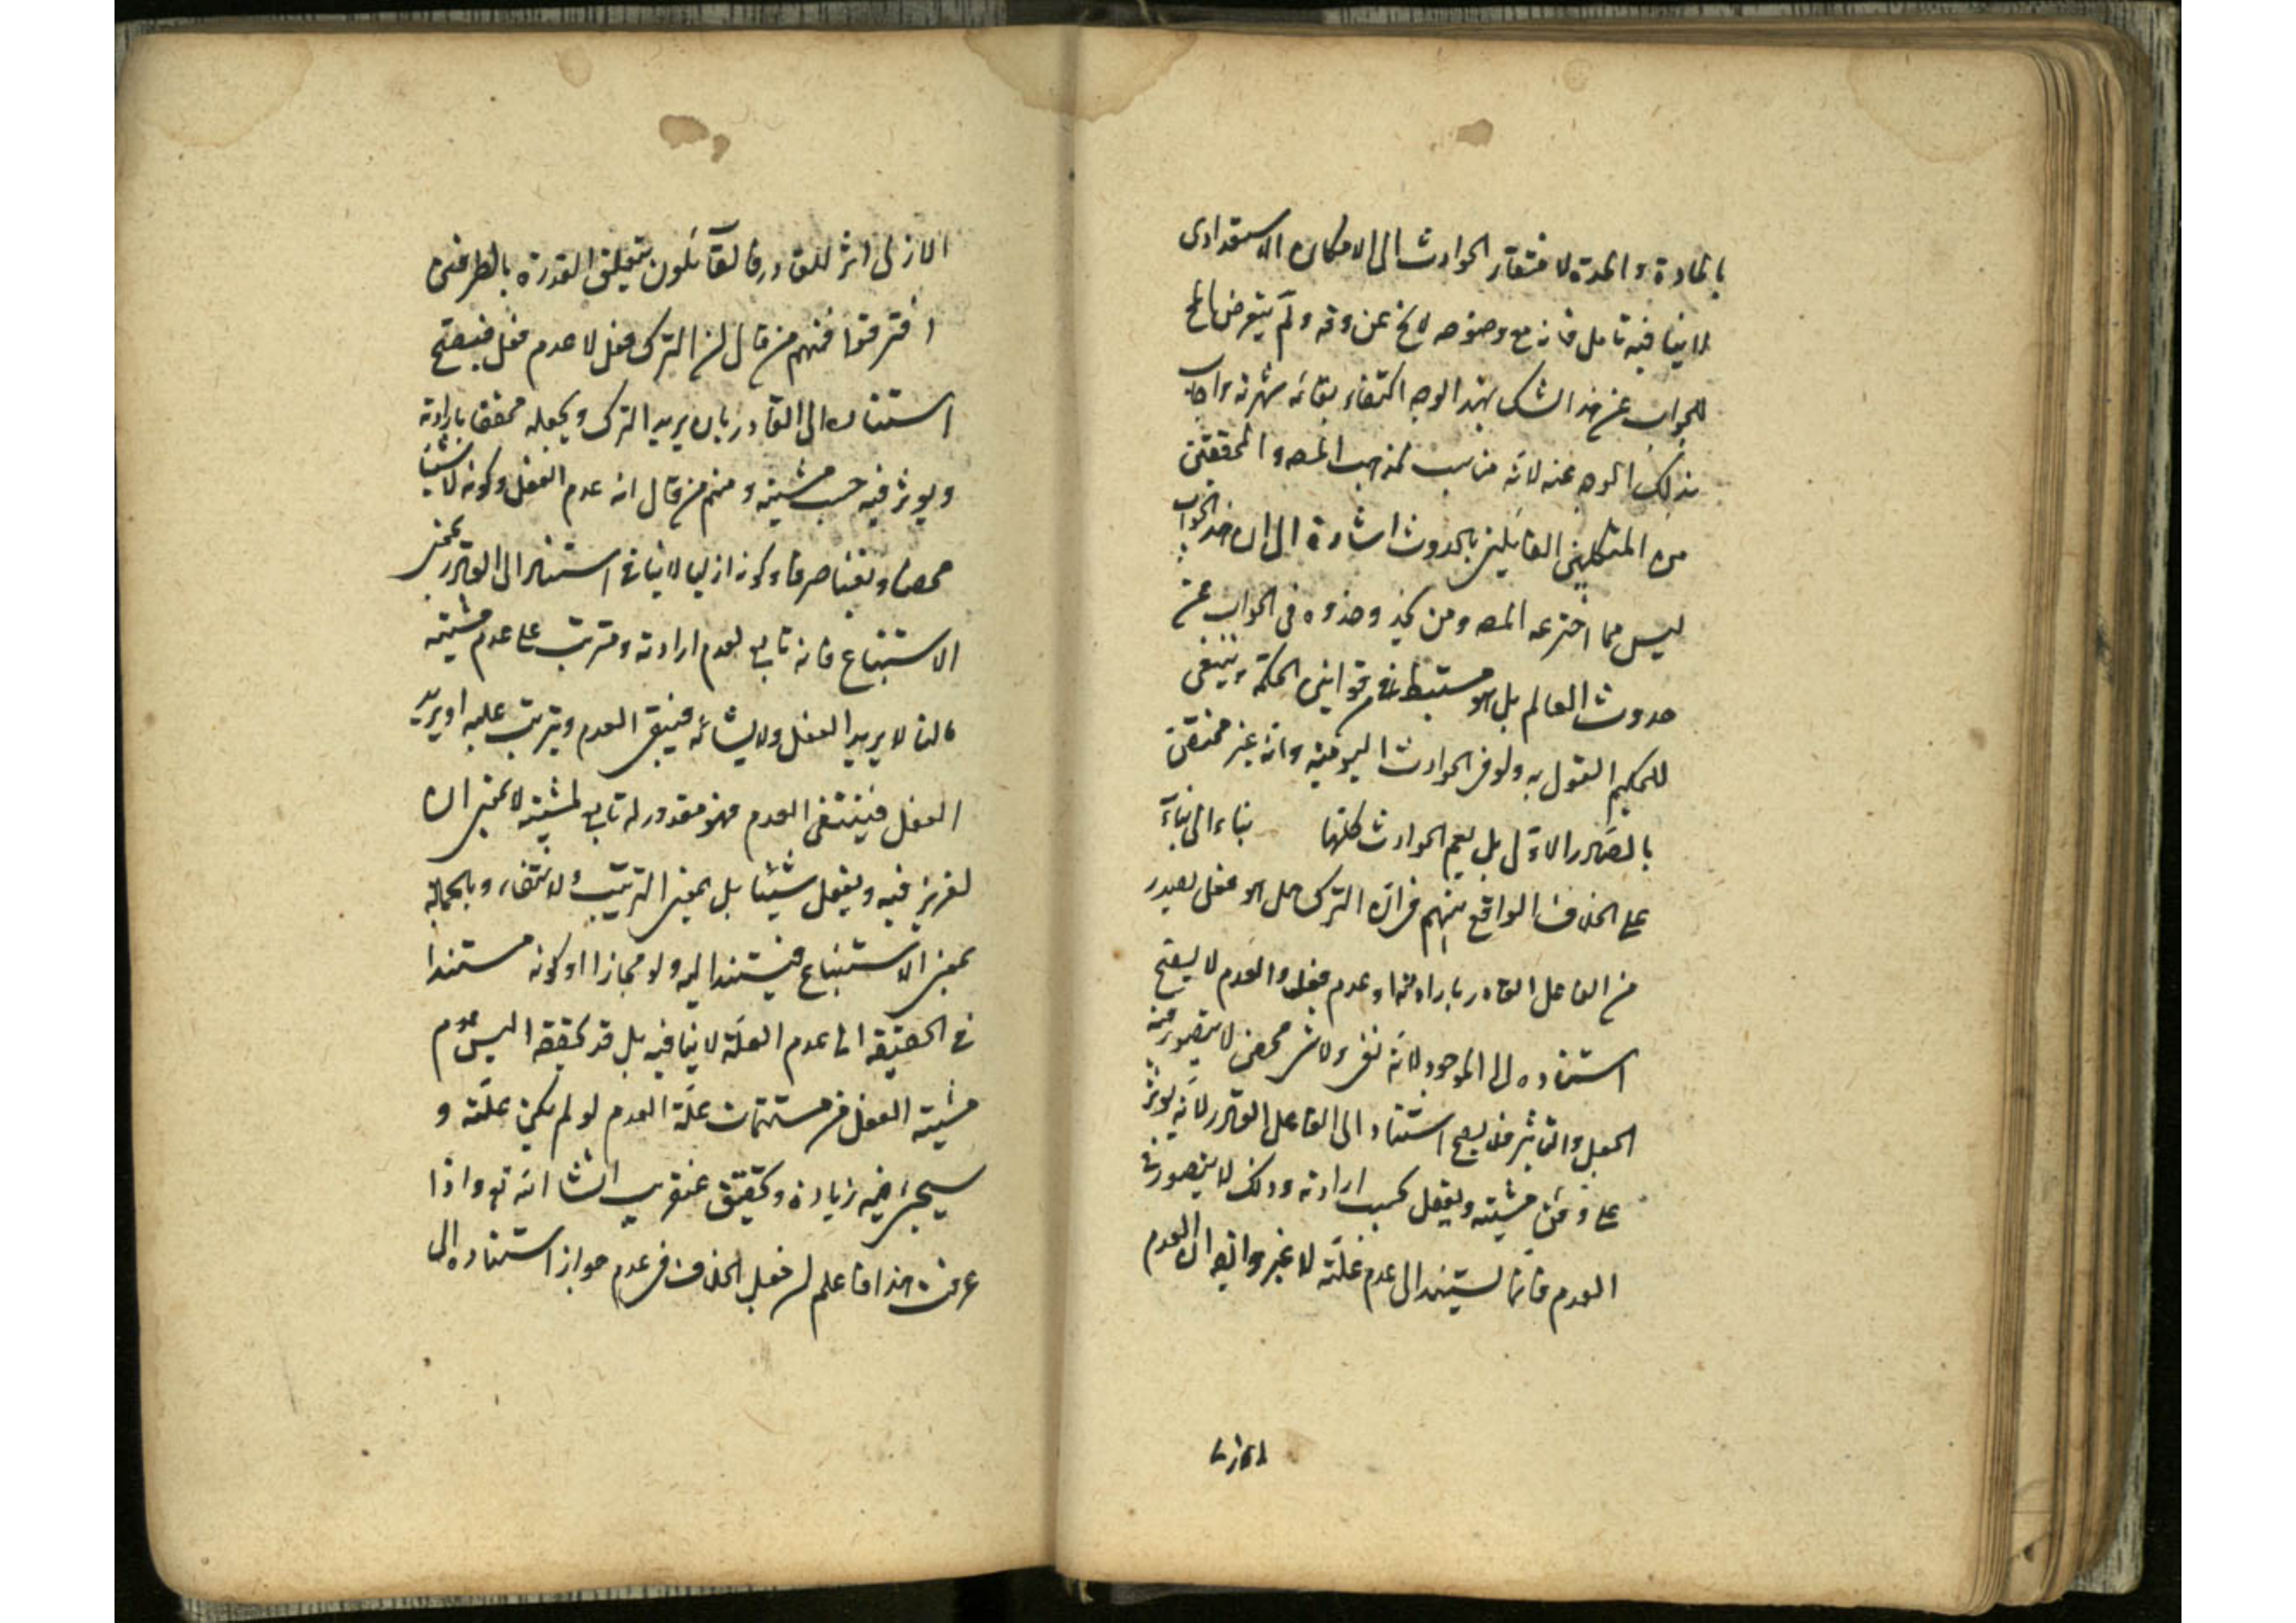 بالمادة والمدة لافتقار الحوادث الى الامكان الاستعدادى
لا ينافيه تامل فانه مع وضوحه لا يخ عن دقة ولم يتعرض المص
للجواب عن هذا الشك بهذا الوجه اكتفاء بغاية شهرته واجاب
بذلك الوجه عنه لانه مناسب لمذهب المصه والمحققين
من المتكلمين القائلين بالحدوث اشارة الى ان هذا الجواب
ليس مما اخترعه المصه ومن يحذو حذوه فى الجواب عن
حدوث العالم بل هو مستنبط من قوانين الحكمة وينبغى
للحكيم القول به ولو فى الحوادث اليومية وانه غير مختص
بالصادر الاول بل يعم الحوادث كلها بناء الى بناء
على الخلاف الواقع بينهم فى ان الترك هل هو فعل يصدر
من الفاعل القادر بارادته او عدم فعل والعدم لا يصح
استناده الى الموجود لانه نفى ولا شئ محض لا يتصور فيه
الجعل والتاثير فلا يصح استناد الى الفاعل القادر لانه يوثر
على وفق مشيته ويفعل بحسب ارادته وذلك لا يتصور فى
العدم فانما يستند الى عدم علته لا غير وايضا العدم
الازلى
الازلى اثر للقادر فالقآئلون بتعلق القدرة بالطرفين
افترقوا فمنهم من قال ان الترك فعل لا عدم فعل فيصح
استناده الى القادر بان يريد الترك ويجعله محققا بارادته
ويوثر فيه حسب مشيته ومنهم من قال انه عدم الفعل وكونه لا شيئا
محضا ونفيا صرفا وكونه ازليا لا ينافى استناده الى القادر بمعنى
الاستتباع فانه تابع لعدم ارادته ومترتب على عدم مشيته
فانه لا يريد الفعل ولا يشائه فيبقى العدم ويترتب عليه او يريد
الفعل فينتفى العدم فهو مقدور له تابع لمشيته لا بمعنى ان
يوثر فيه ويفعل شيئا بل بمعنى الترتب والانتفاء وبالجملة
بمعنى الاستتباع فيستند اليه ولو مجازا او كونه مستندا
فى الحقيقة الى عدم العلة لا ينافيه بل قد يحققه اليس عدم
مشيته الفعل من مستتمات علة العدم لو لم يكن علته و
سيجئ فيه زيادة وتحقيق عنقريب انشا الله تع واذا
عرفت هذا فاعلم ان جعل الخلاف فى عدم جواز استناده الى